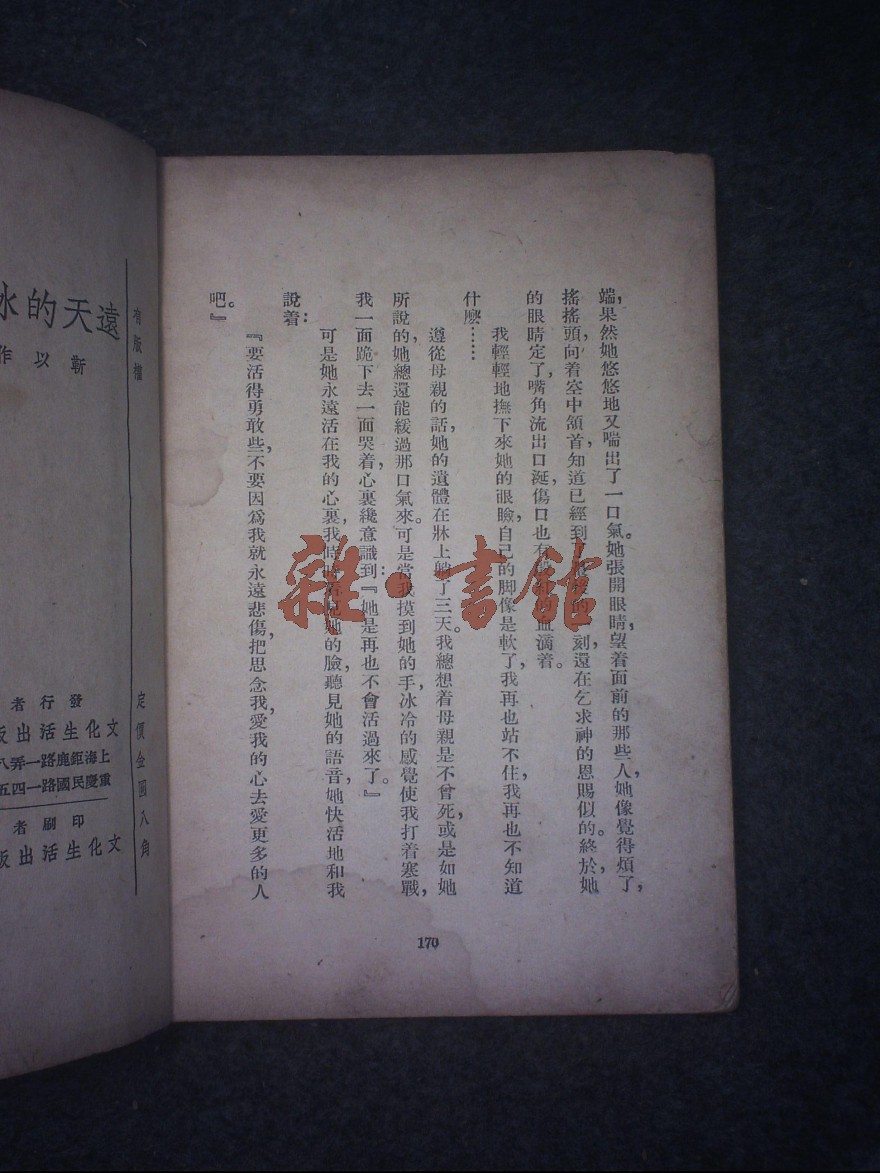 端，果然她悠悠地又喘出了一口氣。她張開眼睛，望着面前的那些人，她像覺得煩了，
搖搖頭，向着空中頷首，知道已經到了最後的一刻，還在乞求神的恩賜似的。終於，她
的眼睛定了，嘴角流出口涎，傷口也有 血滴着。
我輕輕地撫下來她的眼瞼，自己的脚像是軟了，我再也站不住，我再也不知道
什麼……
遵從母親的話，她的遺體在牀上躺了三天。我總想着母親是不曾死，或是如她
所說的，她總還能緩過那口氣來。可是當我摸到她的手，冰冷的感覺使我打着寒戰，
我一面跪下去一面哭着，心裏纔意識到：『她是再也不會活過來了。』
可是她永遠活在我的心裏，我時時看見她的臉，聽見她的語音，她快活地和我
說着：
『要活得勇敢些，不要因爲我就永遠悲傷，把思念我，愛我的心去愛更多的人
吧。』
170
雜·書館
有版權
定價金圓八角
遠天的冰
靳以作
發行者
文化生活出版
上海鉅鹿路一弄八
重慶民國路一四五
印刷者
文化生活出版